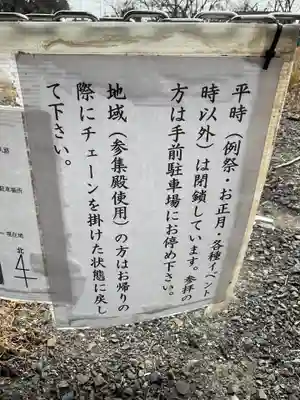 平時（例祭・お正月・各種イベント
時以外）は閉鎖しています。参拝の
方は手前駐車場にお停め下さい。
地域（参集殿使用）の方はお帰りの
際にチェーンを掛けた状態に戻し
て下さい。
現在地
北